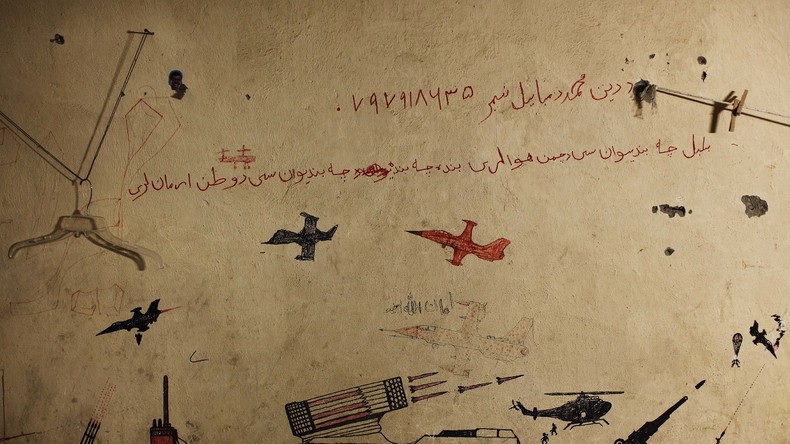 د دین محمد د مبایل نمبر ۰۷۹۷۹۱۸۶۳۵
بلبل چه بندیوان سی دچمن هوا لری بنده چه بندیوان سی د وطن ارمان لری
امان الله